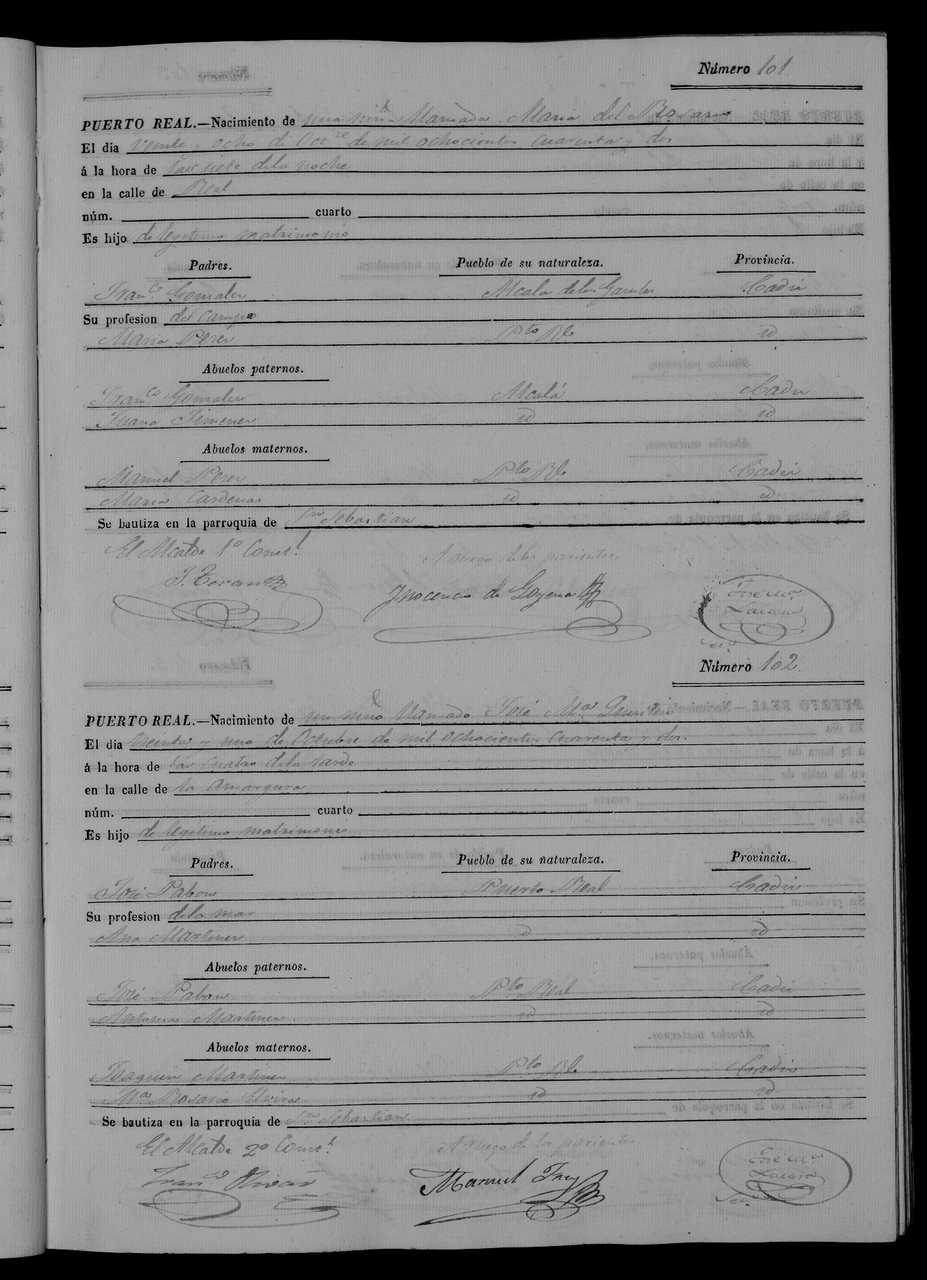 Número 101
PUERTO REAL.—Nacimiento de una niña llamada Maria del Rosario
El día veinte y ocho de Oct.e de mil ochocientos cuarenta y dos
á la hora de las siete de la noche
en la calle de Real
núm. cuarto
Es hijo de legitimo matrimonio
Padres. Pueblo de su naturaleza. Provincia.
Fran.co Gonzalez Alcala de los Gazules Cadiz
Su profesion del campo
Maria Perez Pto Rl
Abuelos paternos.
Fran.co Gonzalez Alcalá Cadiz
Juana Ximenez id id
Abuelos maternos.
Manuel Perez Pto Rl Cadiz
Maria Cardenas id id
Se bautiza en la parroquia de Sn Sebastian
El Alcalde 1º Const.l A ruego de los parientes
J. Teran Inocencio de Goyena José Ma.
Número 102
PUERTO REAL.—Nacimiento de un niño llamado José Ma.
El día treinta y uno de Octubre de mil ochocientos cuarenta y dos.
á la hora de las cuatro de la tarde
en la calle de la Amargura
núm. cuarto
Es hijo de legitimo matrimonio
Padres. Pueblo de su naturaleza. Provincia.
José Pabon Puerto Real Cadiz
Su profesion de la mar
Ana Martinez id id
Abuelos paternos.
José Pabon Pto Real Cadiz
Antonia Martinez id id
Abuelos maternos.
Joaquin Martinez Pto Rl Cadiz
Ma. Rosario id id
Se bautiza en la parroquia de Sn Sebastian
El Alcalde 2º Const.l A ruego de los parientes
Fran.co Rivas Manuel José Ma.